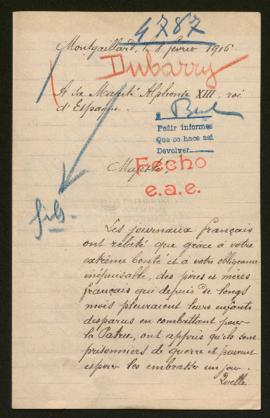 4787
Montgaillard, le 8 février 1916
Dubarry
A sa Majesté Alphonse XIII. roi
d'Espagne.
Pedir informes
Que se hace así
Devolver
Majesté
Fecho
e.a.e.
Les journaux français
ont relaté que grâce à votre
extrême bonté et à votre obligeance
inépuisable, des pères et mères
français qui depuis de longs
mois pleuraient leurs enfants
disparus en combattant pour
la Patrie, ont appris qu'ils sont
prisonniers de guerre et peuvent
espérer les embrasser un jour.
Quelle